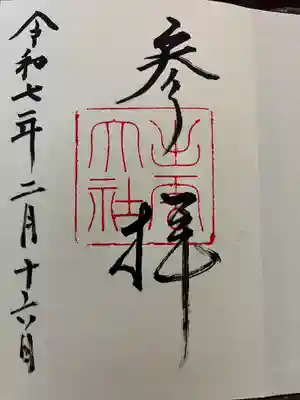 参拝
出雲
大社
令和七年二月十六日